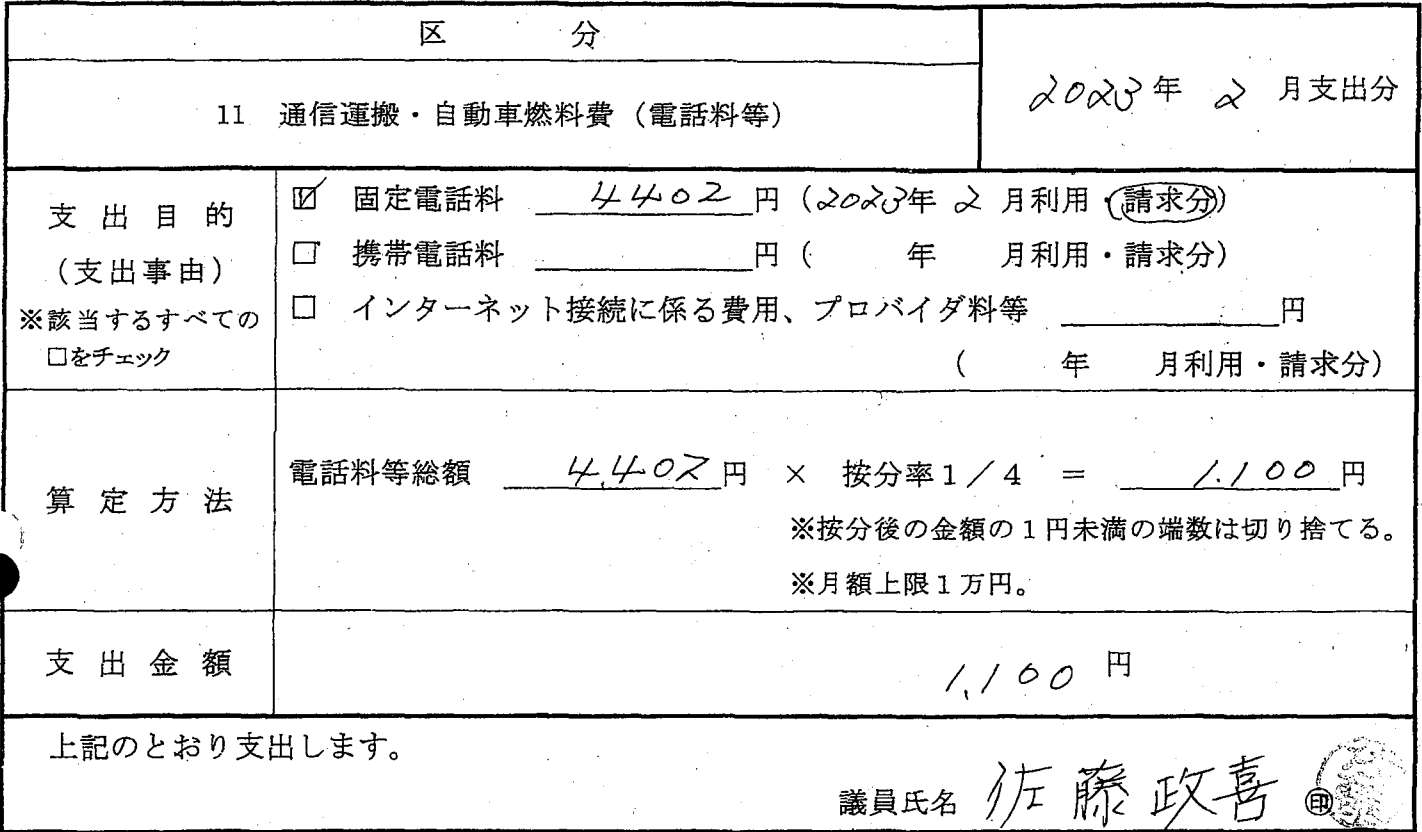 区 分
11 通信運搬・自動車燃料費（電話料等）
2023年 2 月支出分
支出目的
（支出事由）
※該当するすべての
□をチェック
☑ 固定電話料 4402円（2023年 2 月利用・請求分）
□ 携帯電話料 円（ 年 月利用・請求分）
□ インターネット接続に係る費用、プロバイダ料等 円
（ 年 月利用・請求分）
算定方法
電話料等総額 4,402円 × 按分率1／4 ＝ 1,100円
※按分後の金額の1円未満の端数は切り捨てる。
※月額上限1万円。
支出金額
1,100 円
上記のとおり支出します。
議員氏名 佐藤政喜 ㊞